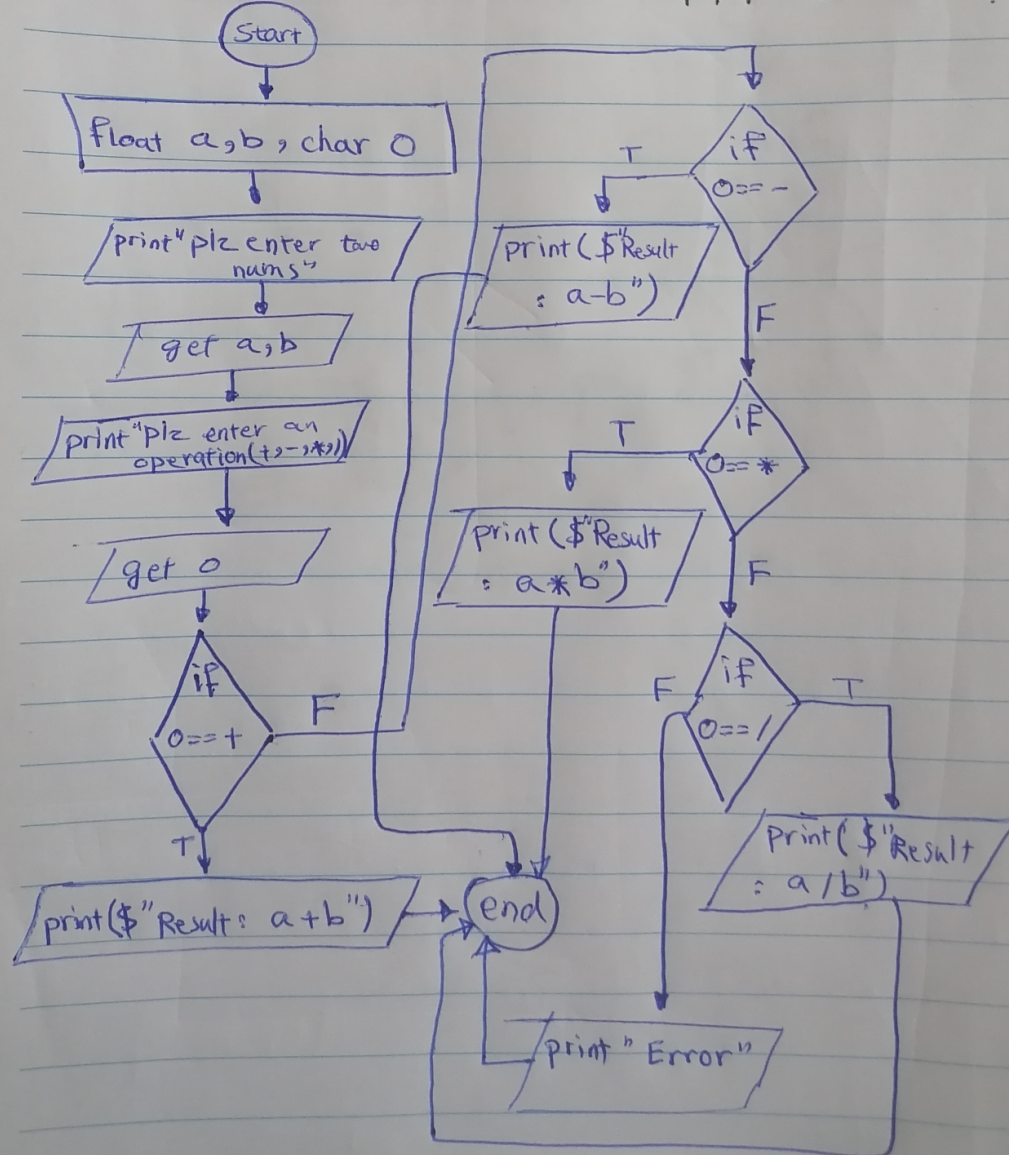 Start
float a,b, char o
print"plz enter two
nums"
get a,b
print"plz enter an
operation(+,-,*,/)
get o
if
o==+
F
T
print($"Result: a+b")
end
if
o==-
T
print($"Result
: a-b")
F
if
o==*
T
print($"Result
: a*b")
F
if
o==/
F
T
print($"Result
: a/b")
print "Error"